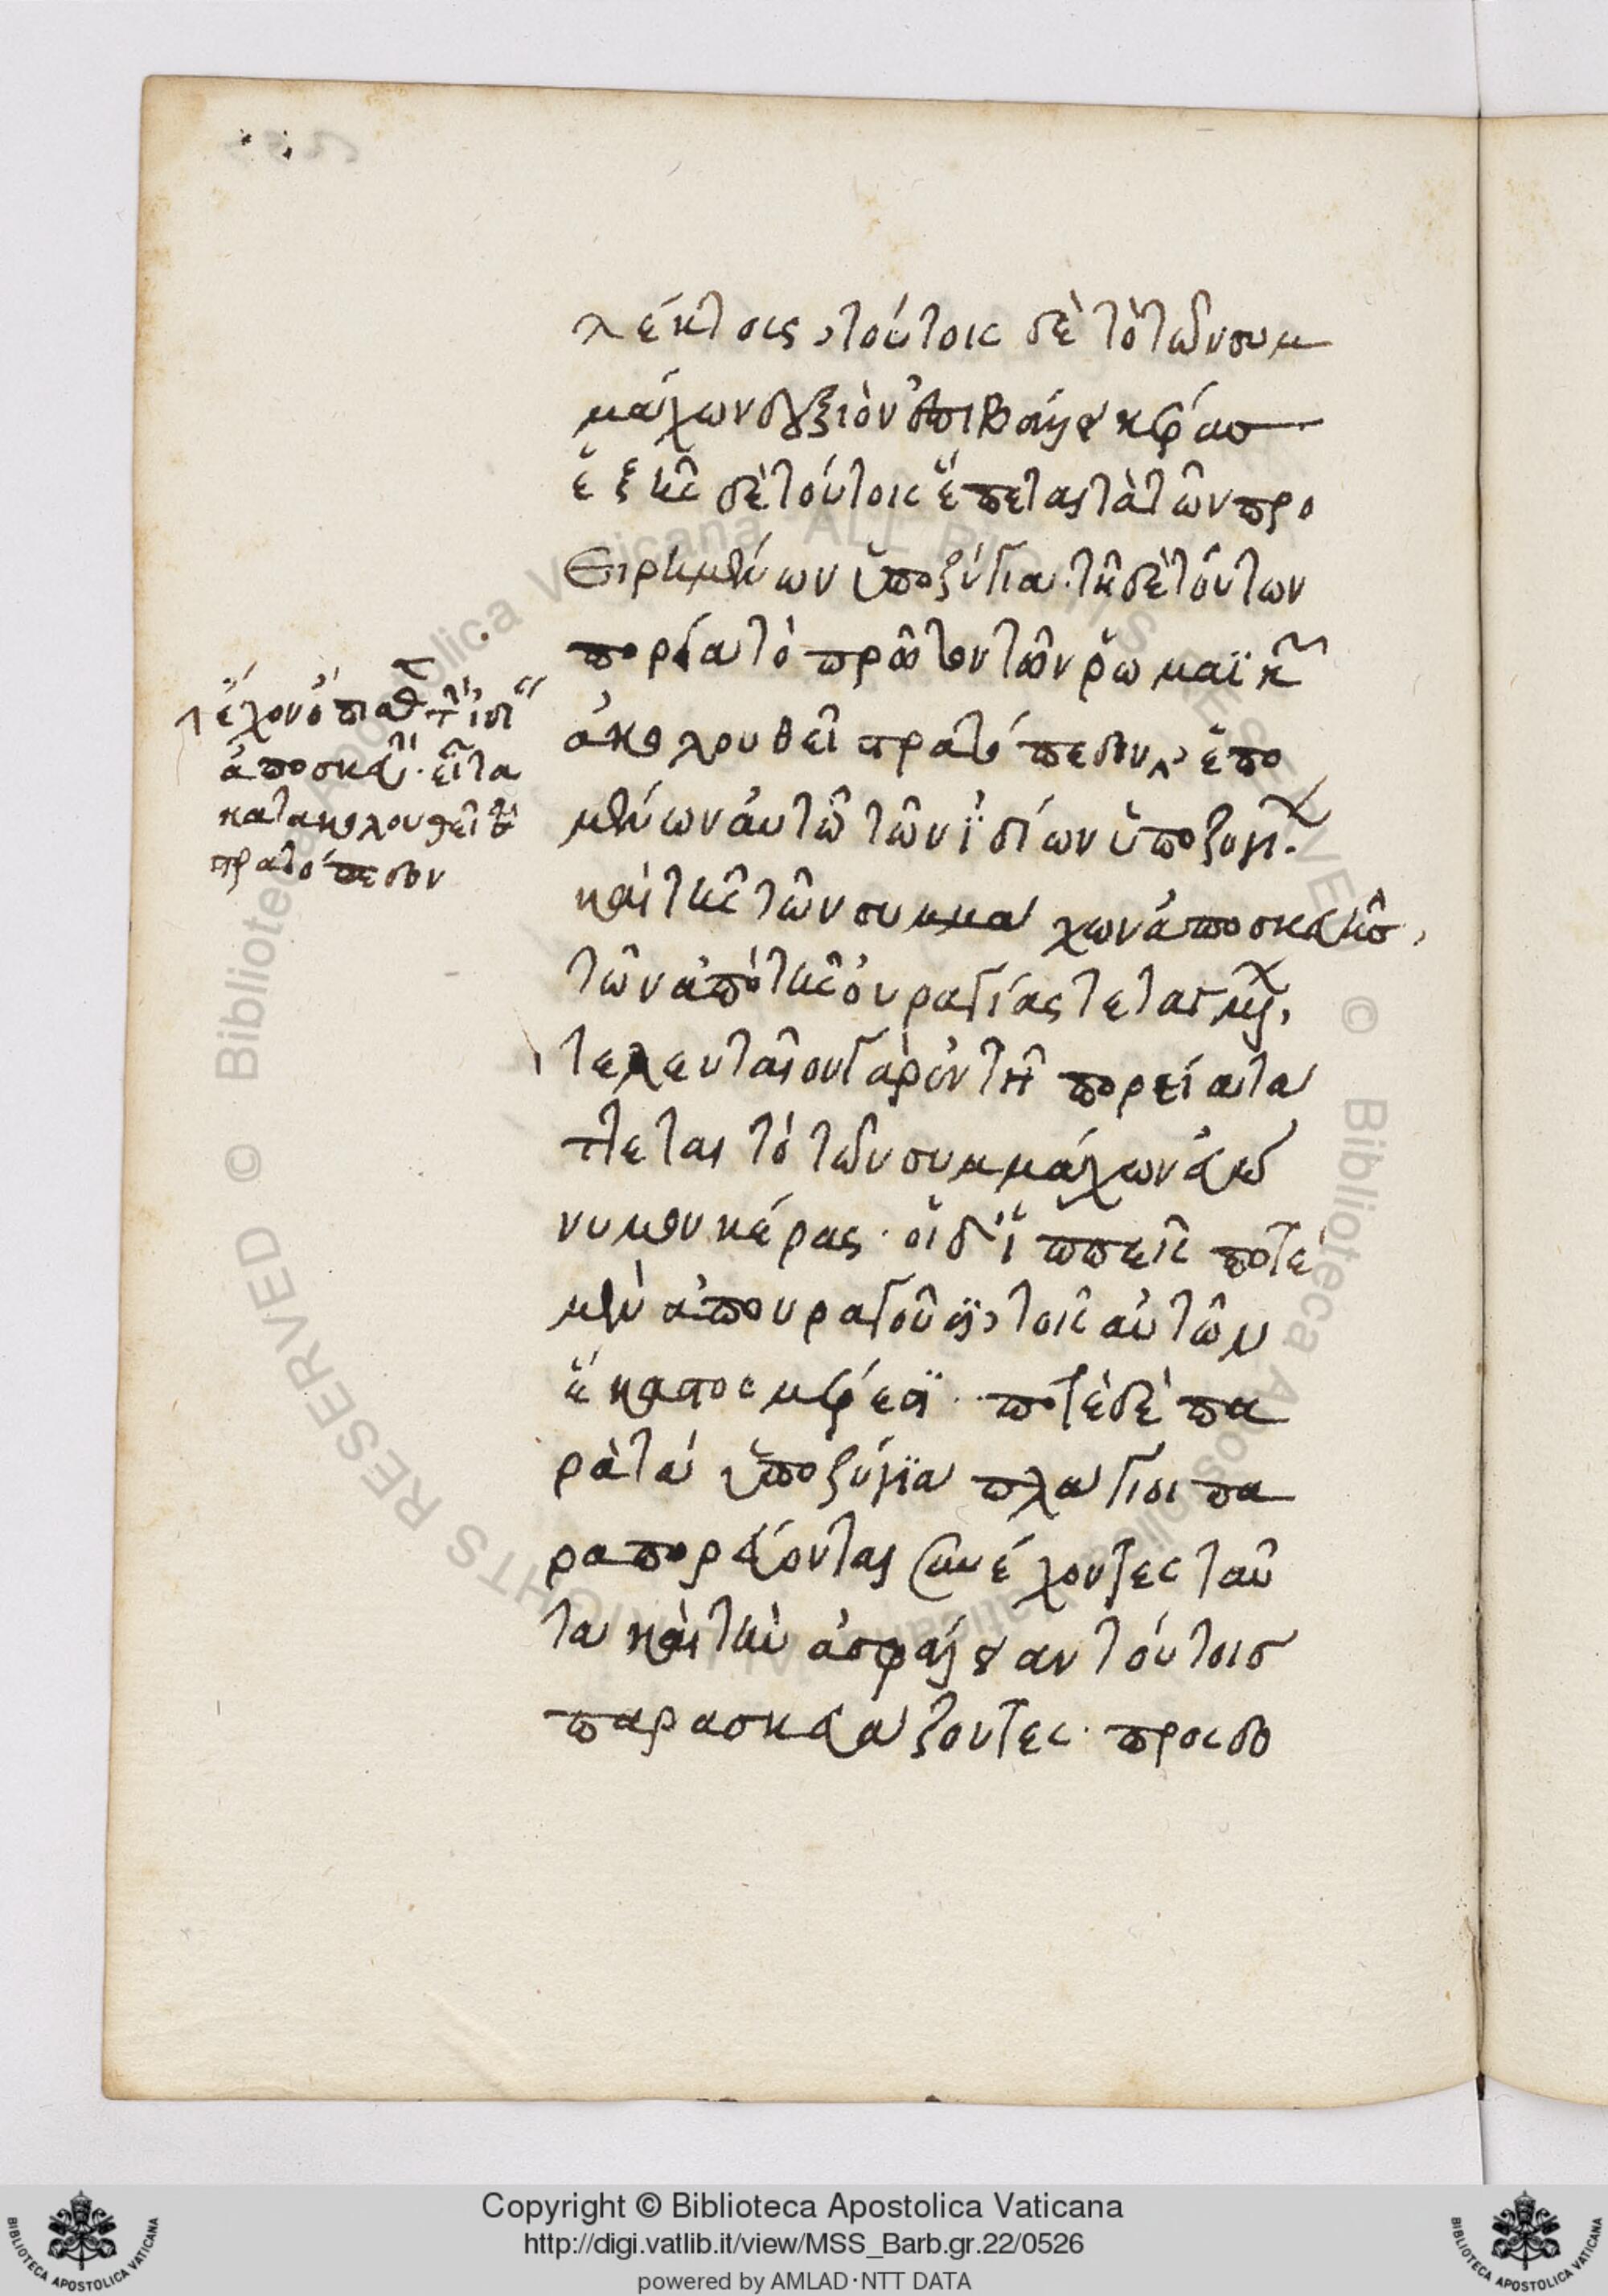 λέκτοις, τούτοις δὲ τὸ τῶν συμ
μάχων δεξιὸν ἐπιβάλλει κέρασ
ἑξῆς δὲ τούτοις ἕπεται τὰ τῶν προ
ειρημένων ὑποζύγια· τῇ δὲ τούτων
πορείᾳ τὸ πρῶτον τῶν ῥωμαϊκῶν
ἀκολουθεῖ στρατόπεδον, ἑπο
μένων αὐτῶ τῶν ἰδίων ὑποζυγίων.
καὶ τῆς τῶν συμμάχων ἀποσκευῆσ,
τῶν ἀπὸ τῆς οὐραγίας τεταγμένων,
τελευταῖον γὰρ ἐν τῇ πορείᾳ τά
ττεται τὸ τῶν συμμάχων εὐώ
νυμον κέρας· οἱ δ' ἱππεῖς ποτὲ
μὲν ἀπουραγοῦσι, τοῖς αὑτῶν
ἕκαστος μέρεσι· ποτὲ δὲ πα
ρὰ τὰ ὑποζύγια πλάγιοι πα
ραπορεύονται συνέχοντες ταῦ
τα καὶ τὴν ἀσφάλειαν τούτοισ
παρασκευάζοντες· προσδο
ἔχον ὄπισθεν τὴν ἰδίαν
ἀποσκευήν· εἶτα
κατακολουθεῖ τὸ
στρατόπεδον
Copyright © Biblioteca Apostolica Vaticana
http://digi.vatlib.it/view/MSS_Barb.gr.22/0526
powered by AMLAD·NTT DATA